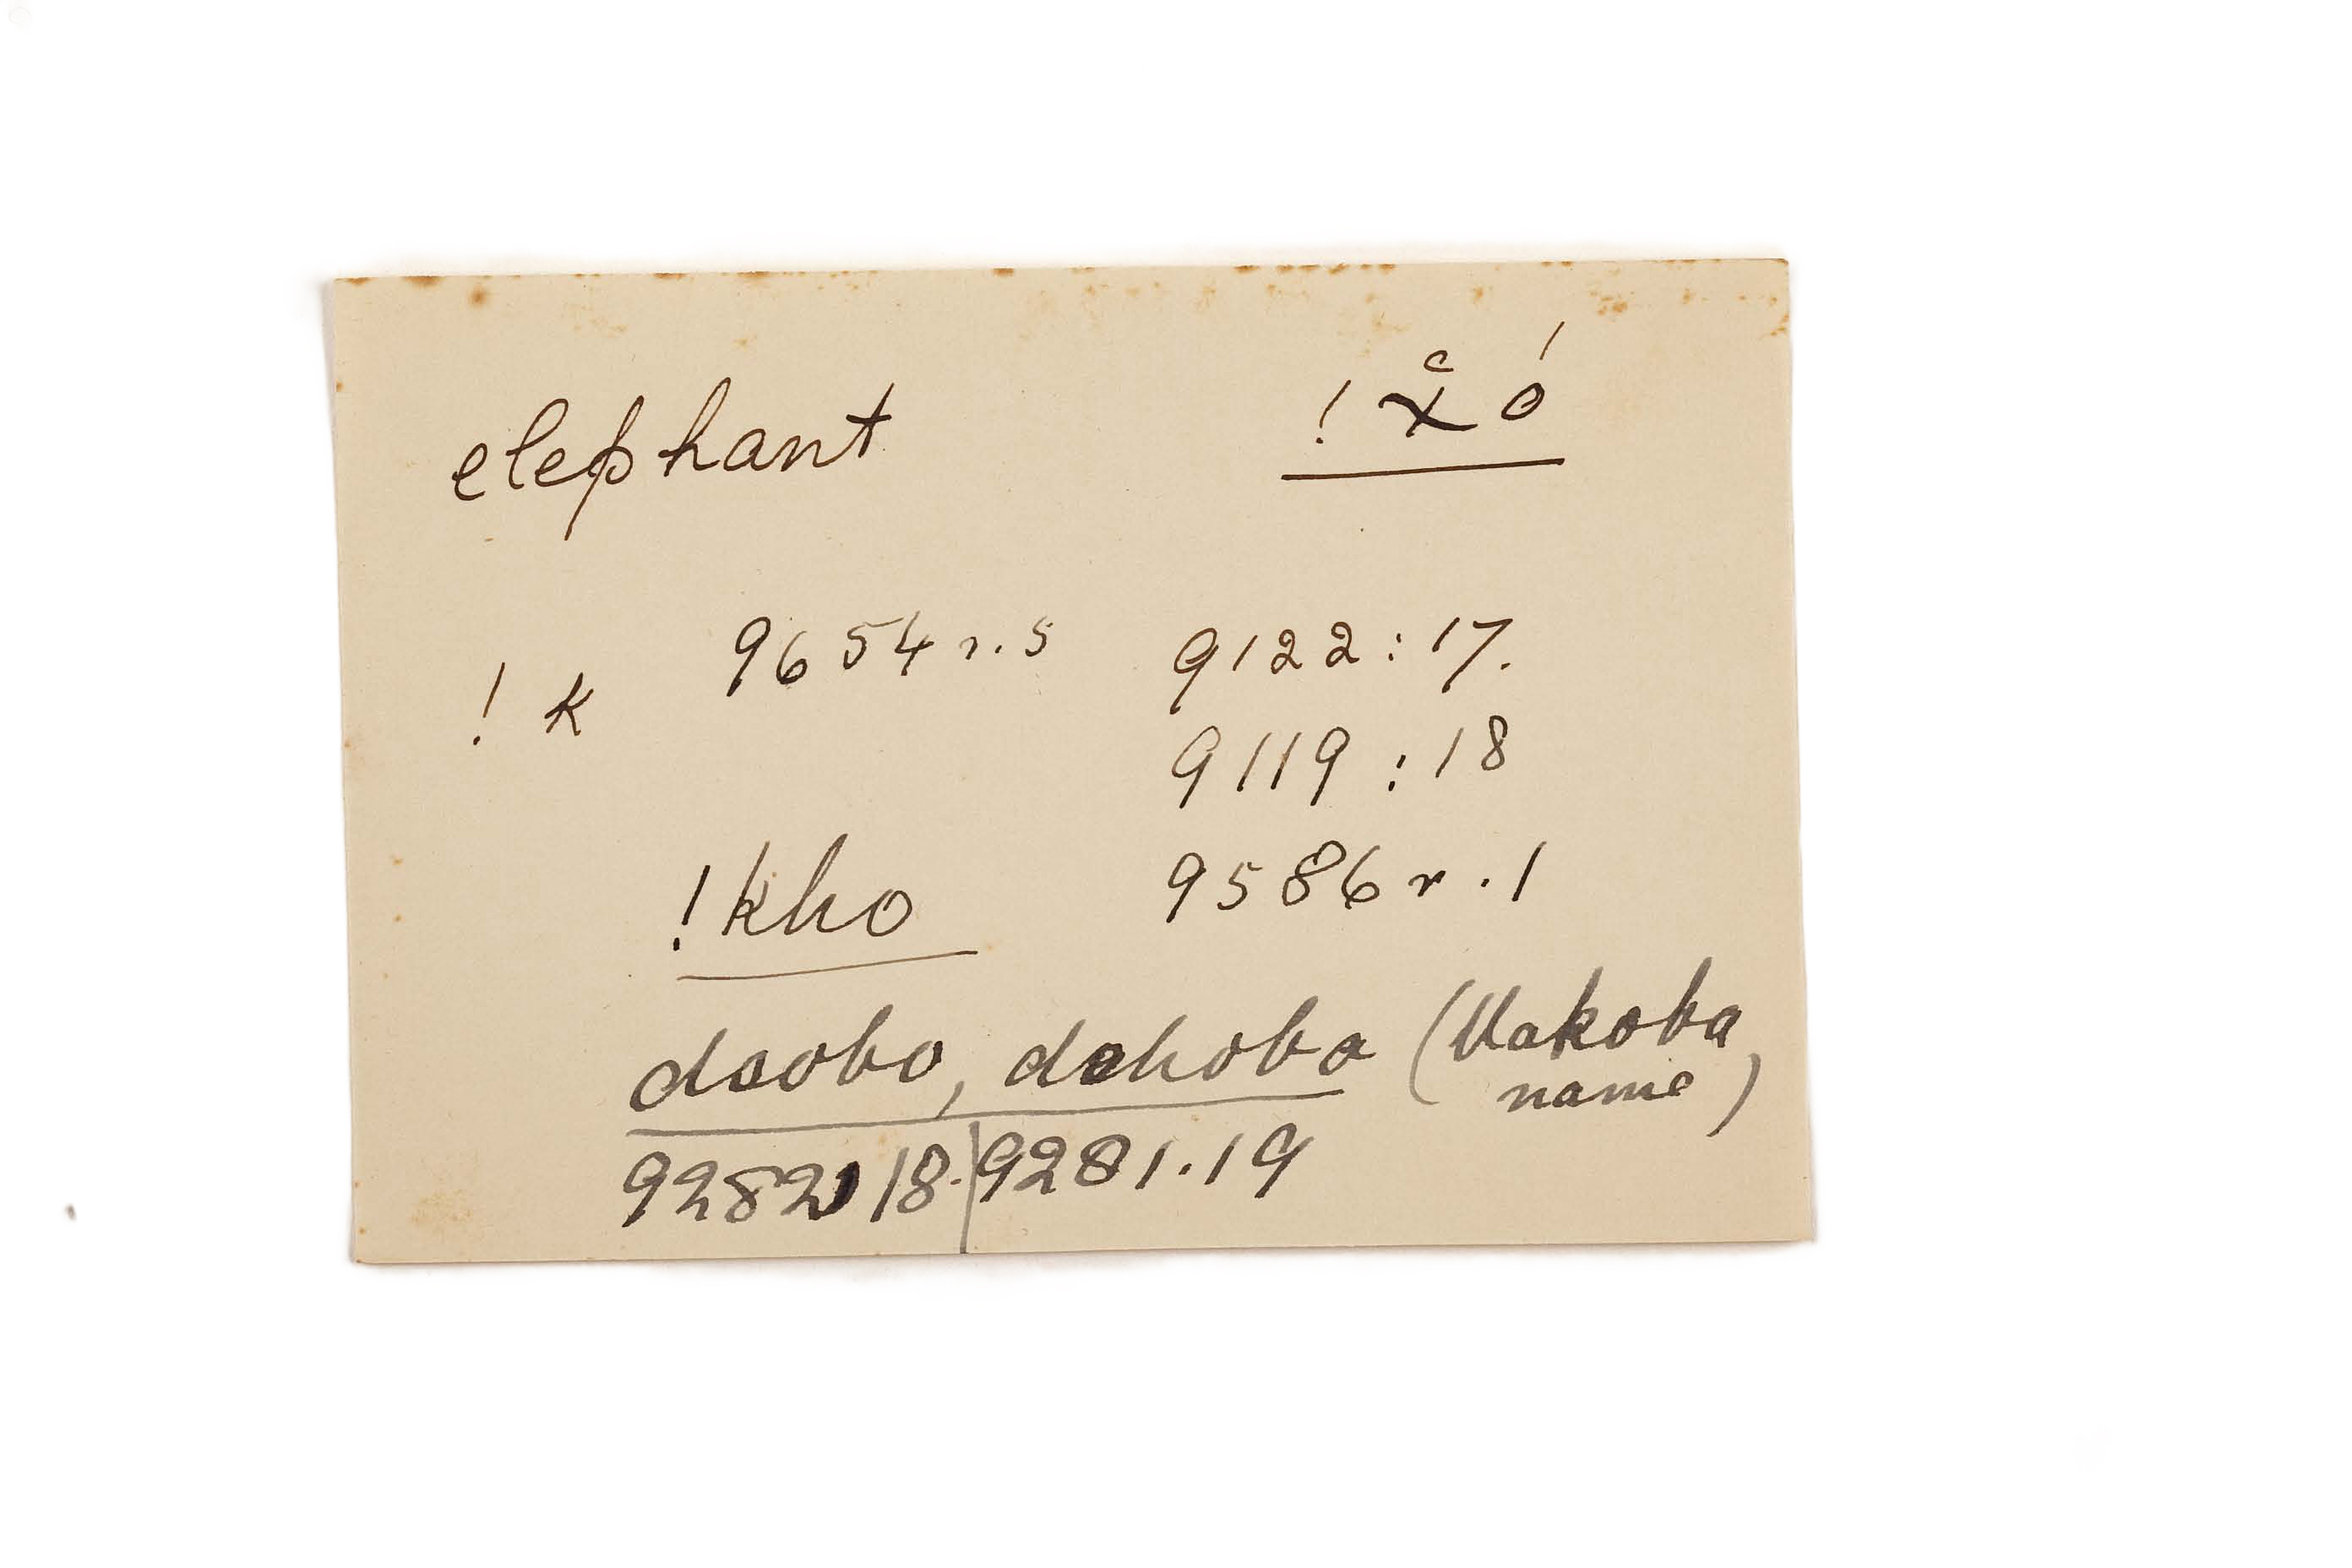 elephant !x̆ó
! k 9654 r. 5 9122 : 17.
9119 : 18
!kho 9586 r . 1
dsobo, dshoba (Makoba
name)
9282 18. | 9281 . 19